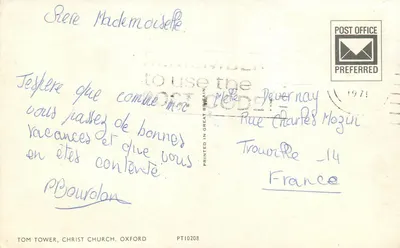 Mademoiselle
J'espère que comme moi
vous passez de bonnes
vacances et que vous
en êtes contente.
PBourdon
POST OFFICE
PREFERRED
REMEMBER
to use the
POST CODE
1971
Melle Duvernay
Rue Charles Mozin
Trouville _ 14
France
PRINTED IN GREAT BRITAIN
TOM TOWER, CHRIST CHURCH, OXFORD PT10203